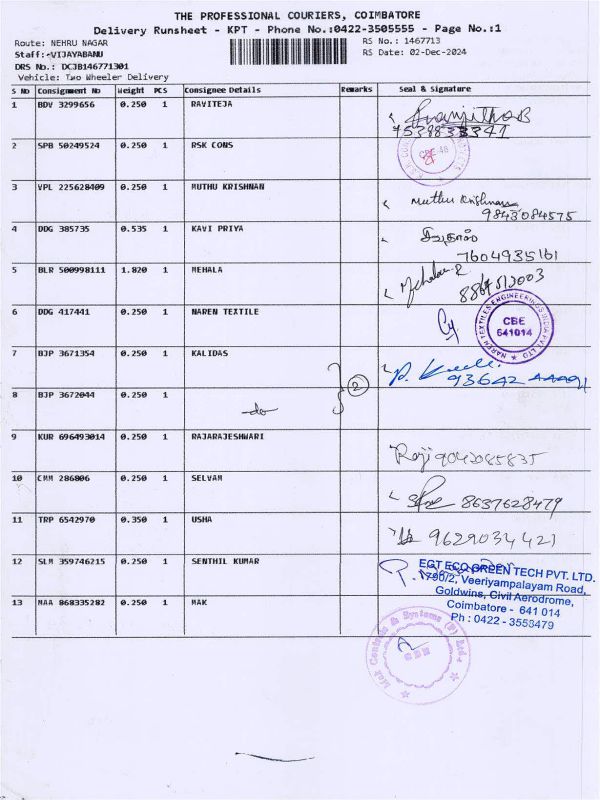 THE PROFESSIONAL COURIERS, COIMBATORE
Delivery Runsheet - KPT - Phone No.:0422-3505555 - Page No.:1
Route: NEHRU NAGAR RS No.: 1467713
Staff:-VIJAYABANU RS Date: 02-Dec-2024
DRS No.: DCJB146771301
Vehicle: Two Wheeler Delivery
S No Consignment No Weight PCS Consignee Details Remarks Seal & Signature
1 BDV 3299656 0.250 1 RAVITEJA
7539833341
2 SPB 50249524 0.250 1 RSK CONS
CBE-48
3 VPL 225628409 0.250 1 MUTHU KRISHNAN Muthu Krishnan
9843084575
4 DDG 385735 0.535 1 KAVI PRIYA
7604935161
5 BLR 500998111 1.820 1 MEHALA Mehala R
8867512003
6 DDG 417441 0.250 1 NAREN TEXTILE
NAREN TEXTILES ENGINEERINGS INDIA PVT LTD
CBE
641014
7 BJP 3671354 0.250 1 KALIDAS
2
8 BJP 3672044 0.250 1 -do-
9 KUR 696493014 0.250 1 RAJARAJESHWARI
Raji 9042085835
10 CMM 286806 0.250 1 SELVAM
8637628479
11 TRP 6542970 0.350 1 USHA
9629034421
12 SLM 359746215 0.250 1 SENTHIL KUMAR
EGT ECO GREEN TECH PVT. LTD.
1790/2, Veeriyampalayam Road,
Goldwins, Civil Aerodrome,
Coimbatore - 641 014
Ph : 0422 - 3558479
13 MAA 868335282 0.250 1 MAK
Mak Controls & Systems (P) Ltd.